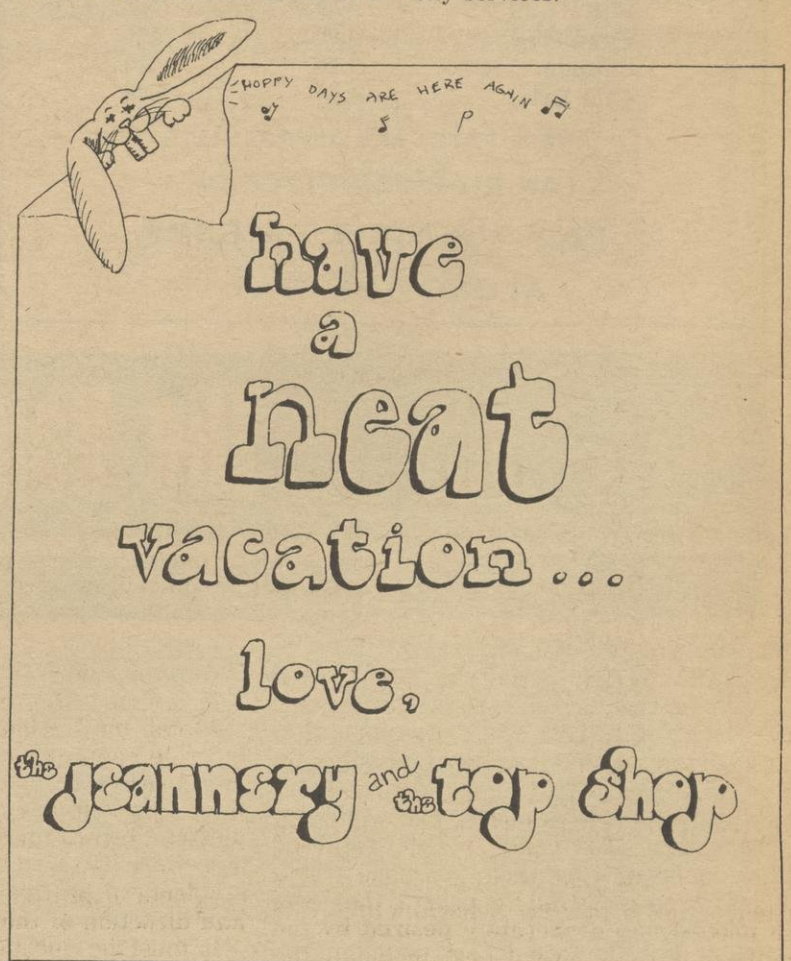 services.
HOPPY DAYS ARE HERE AGAIN
have
a
neat
vacation...
love,
the jeannery and the top shop